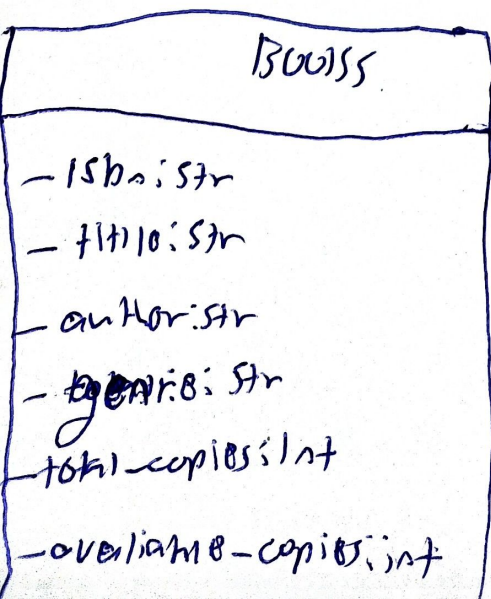 Books
- isbn: str
- title: str
- author: str
- genre: str
- total_copies: int
- avaliable_copies: int